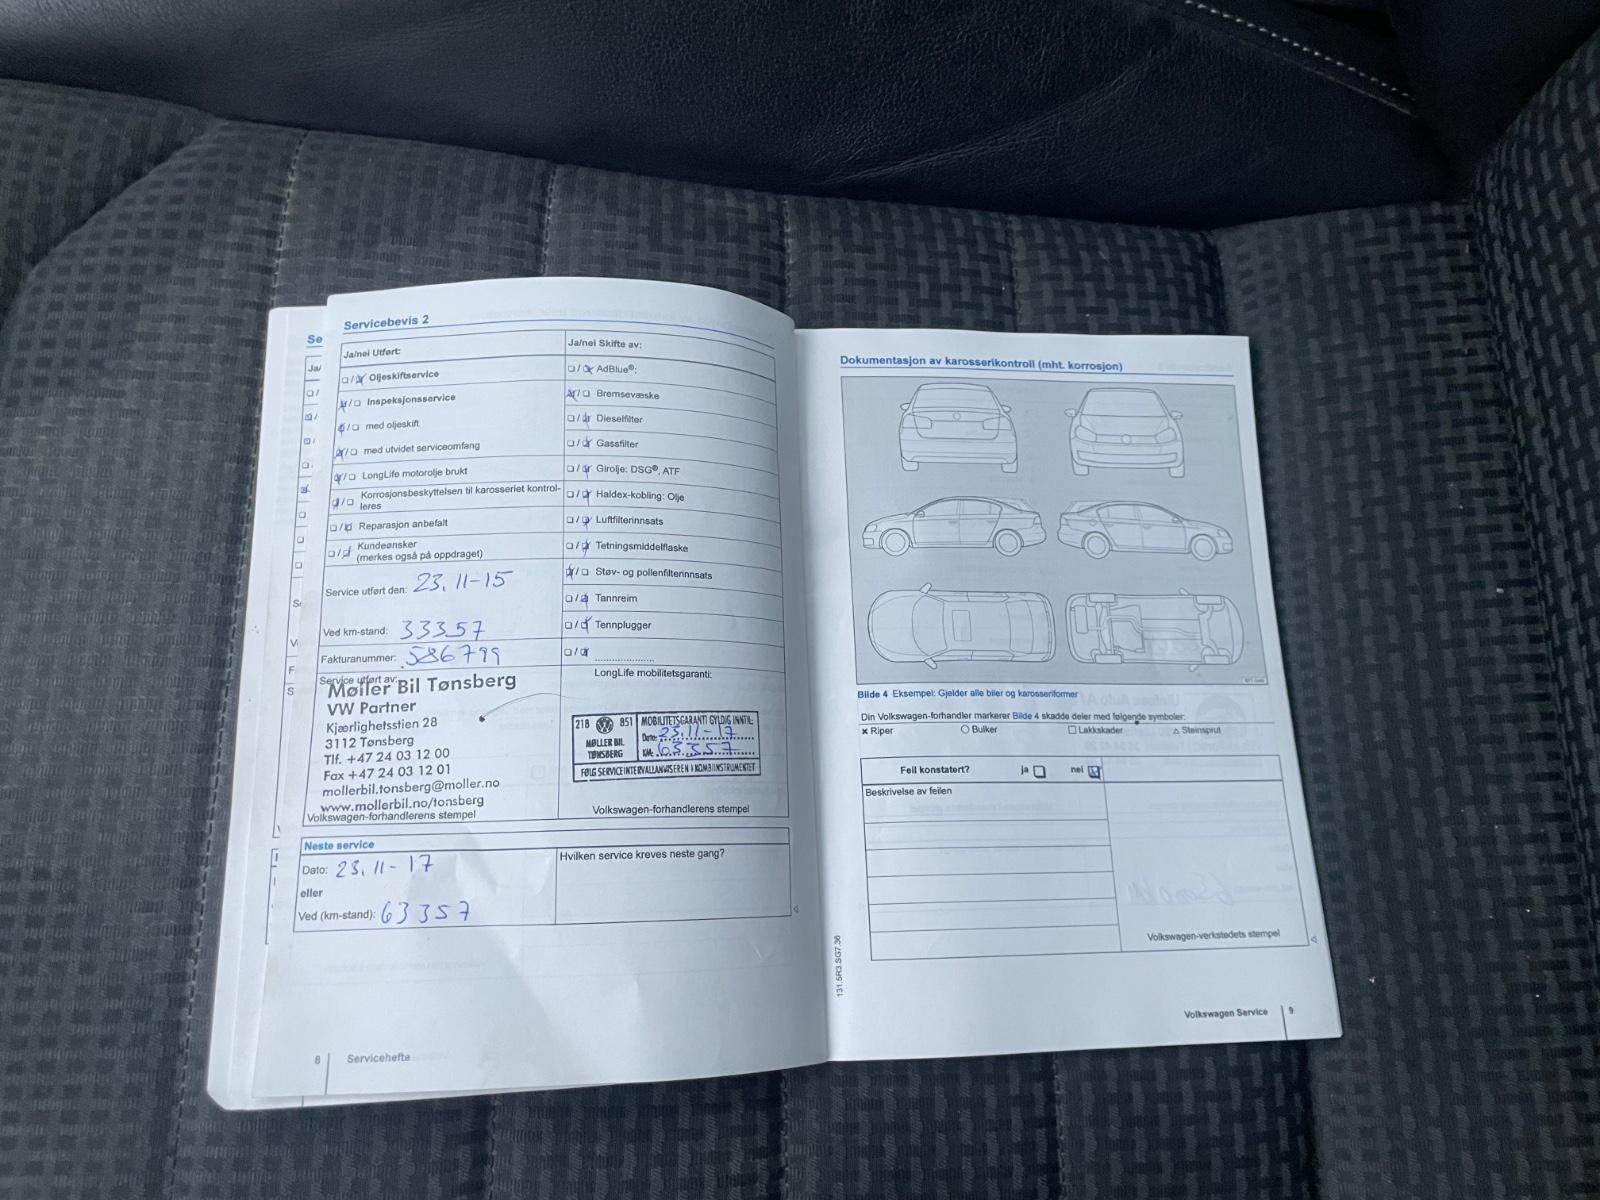 Servicebevis 2
Ja/nei Utført:
Oljeskiftservice
Inspeksjonsservice
med oljeskift
med utvidet serviceomfang
LongLife motorolje brukt
Korrosjonsbeskyttelsen til karosseriet kontrol-
leres
Reparasjon anbefalt
Kundeønsker
(merkes også på oppdraget)
Service utført den: 23.11-15
Ved km-stand: 33357
Fakturanummer: 586799
Service utført av:
Møller Bil Tønsberg
VW Partner
Kjærlighetsstien 28
3112 Tønsberg
Tlf. +47 24 03 12 00
Fax +47 24 03 12 01
mollerbil.tonsberg@moller.no
www.mollerbil.no/tonsberg
Volkswagen-forhandlerens stempel
Ja/nei Skifte av:
AdBlue®:
Bremsevæske
Dieselfilter
Gassfilter
Girolje: DSG®, ATF
Haldex-kobling: Olje
Luftfilterinnsats
Tetningsmiddelflaske
Støv- og pollenfilterinnsats
Tannreim
Tennplugger
LongLife mobilitetsgaranti:
218 851
MØLLER BIL
TØNSBERG
MOBILITETSGARANTI GYLDIG INNTIL:
Dato: 23.11-17
KM: 63357
FØLG SERVICEINTERVALLANVISEREN I KOMBIINSTRUMENTET
Volkswagen-forhandlerens stempel
Neste service
Dato: 23.11-17
eller
Ved (km-stand): 63357
Hvilken service kreves neste gang?
8 Servicehefte
Dokumentasjon av karosserikontroll (mht. korrosjon)
Bilde 4 Eksempel: Gjelder alle biler og karosseriformer
Din Volkswagen-forhandler markerer Bilde 4 skadde deler med følgende symboler:
× Riper ○ Bulker □ Lakkskader △ Steinsprut
Feil konstatert? ja nei
Beskrivelse av feilen
Volkswagen-verkstedets stempel
131.5R3.SG7.36
Volkswagen Service 9